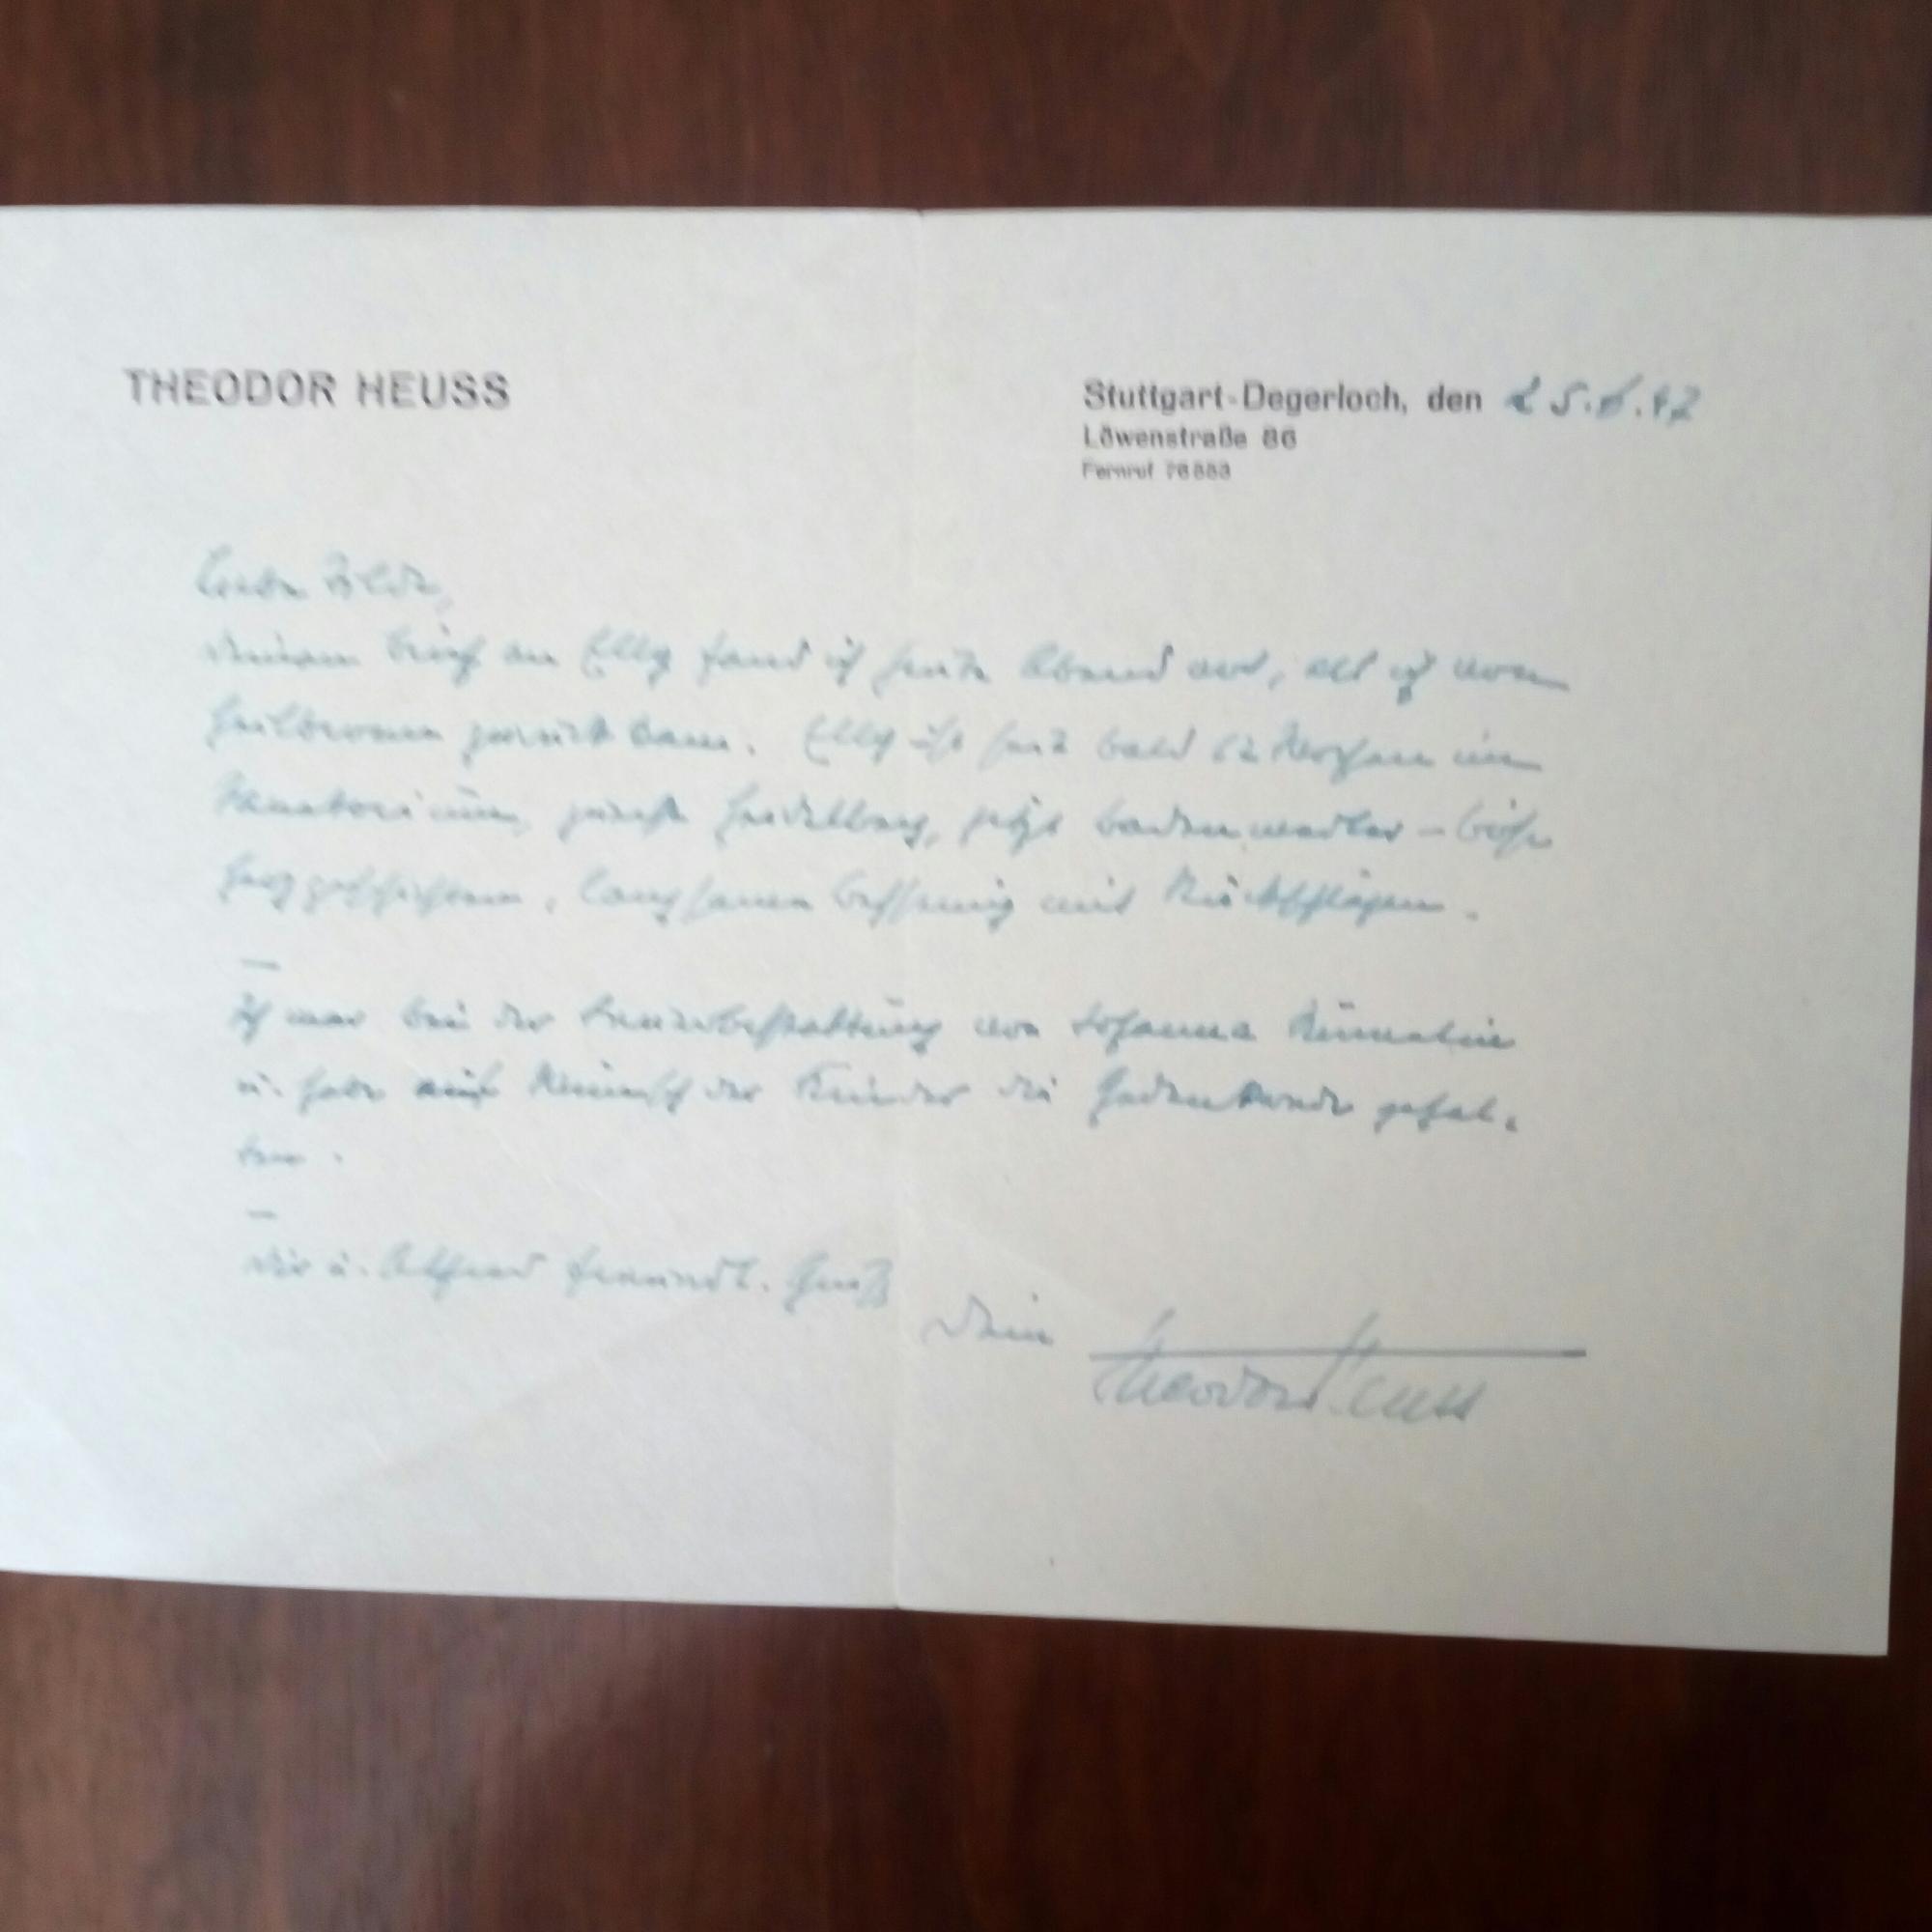 THEODOR HEUSS
Stuttgart-Degerloch, den 25.6.47
Löwenstraße 86
Fernruf
Liebe
deinen Brief an Elly fand ich heute Abend vor, als ich von
Heilbronn zurückkam. Elly ist seit bald 12 Wochen im
Sanatorium, zuerst Heidelberg, jetzt Badenweiler – böse
Herzgeschichten, langsame Besserung mit Rückschlägen.
—
Ich war bei der Feuerbestattung von Johanna
u. habe auf Wunsch der Kinder die Gedenkrede gehal-
ten.
—
Dir u. Alfred freundl. Gruß
Dein
Theodor Heuss